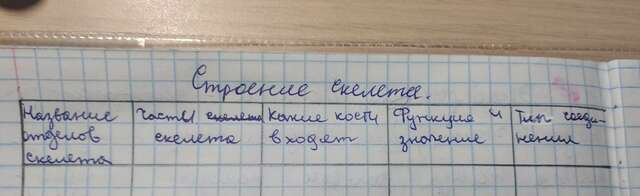 Строение скелета.
Название отделов скелета
Части скелета скелета
Какие кости входят
Функция и значение
Типы соединения